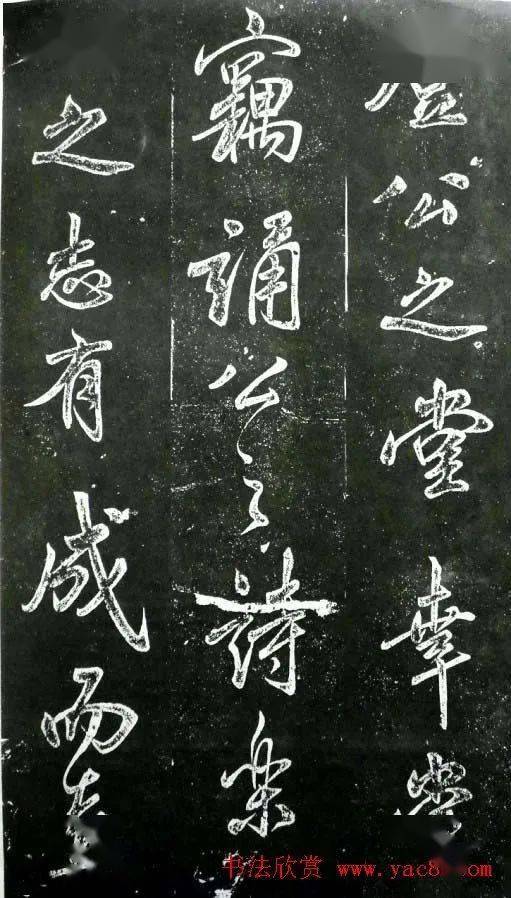 公之堂幸
竊誦公之詩樂
之志有成而
书法欣赏 www.yac8